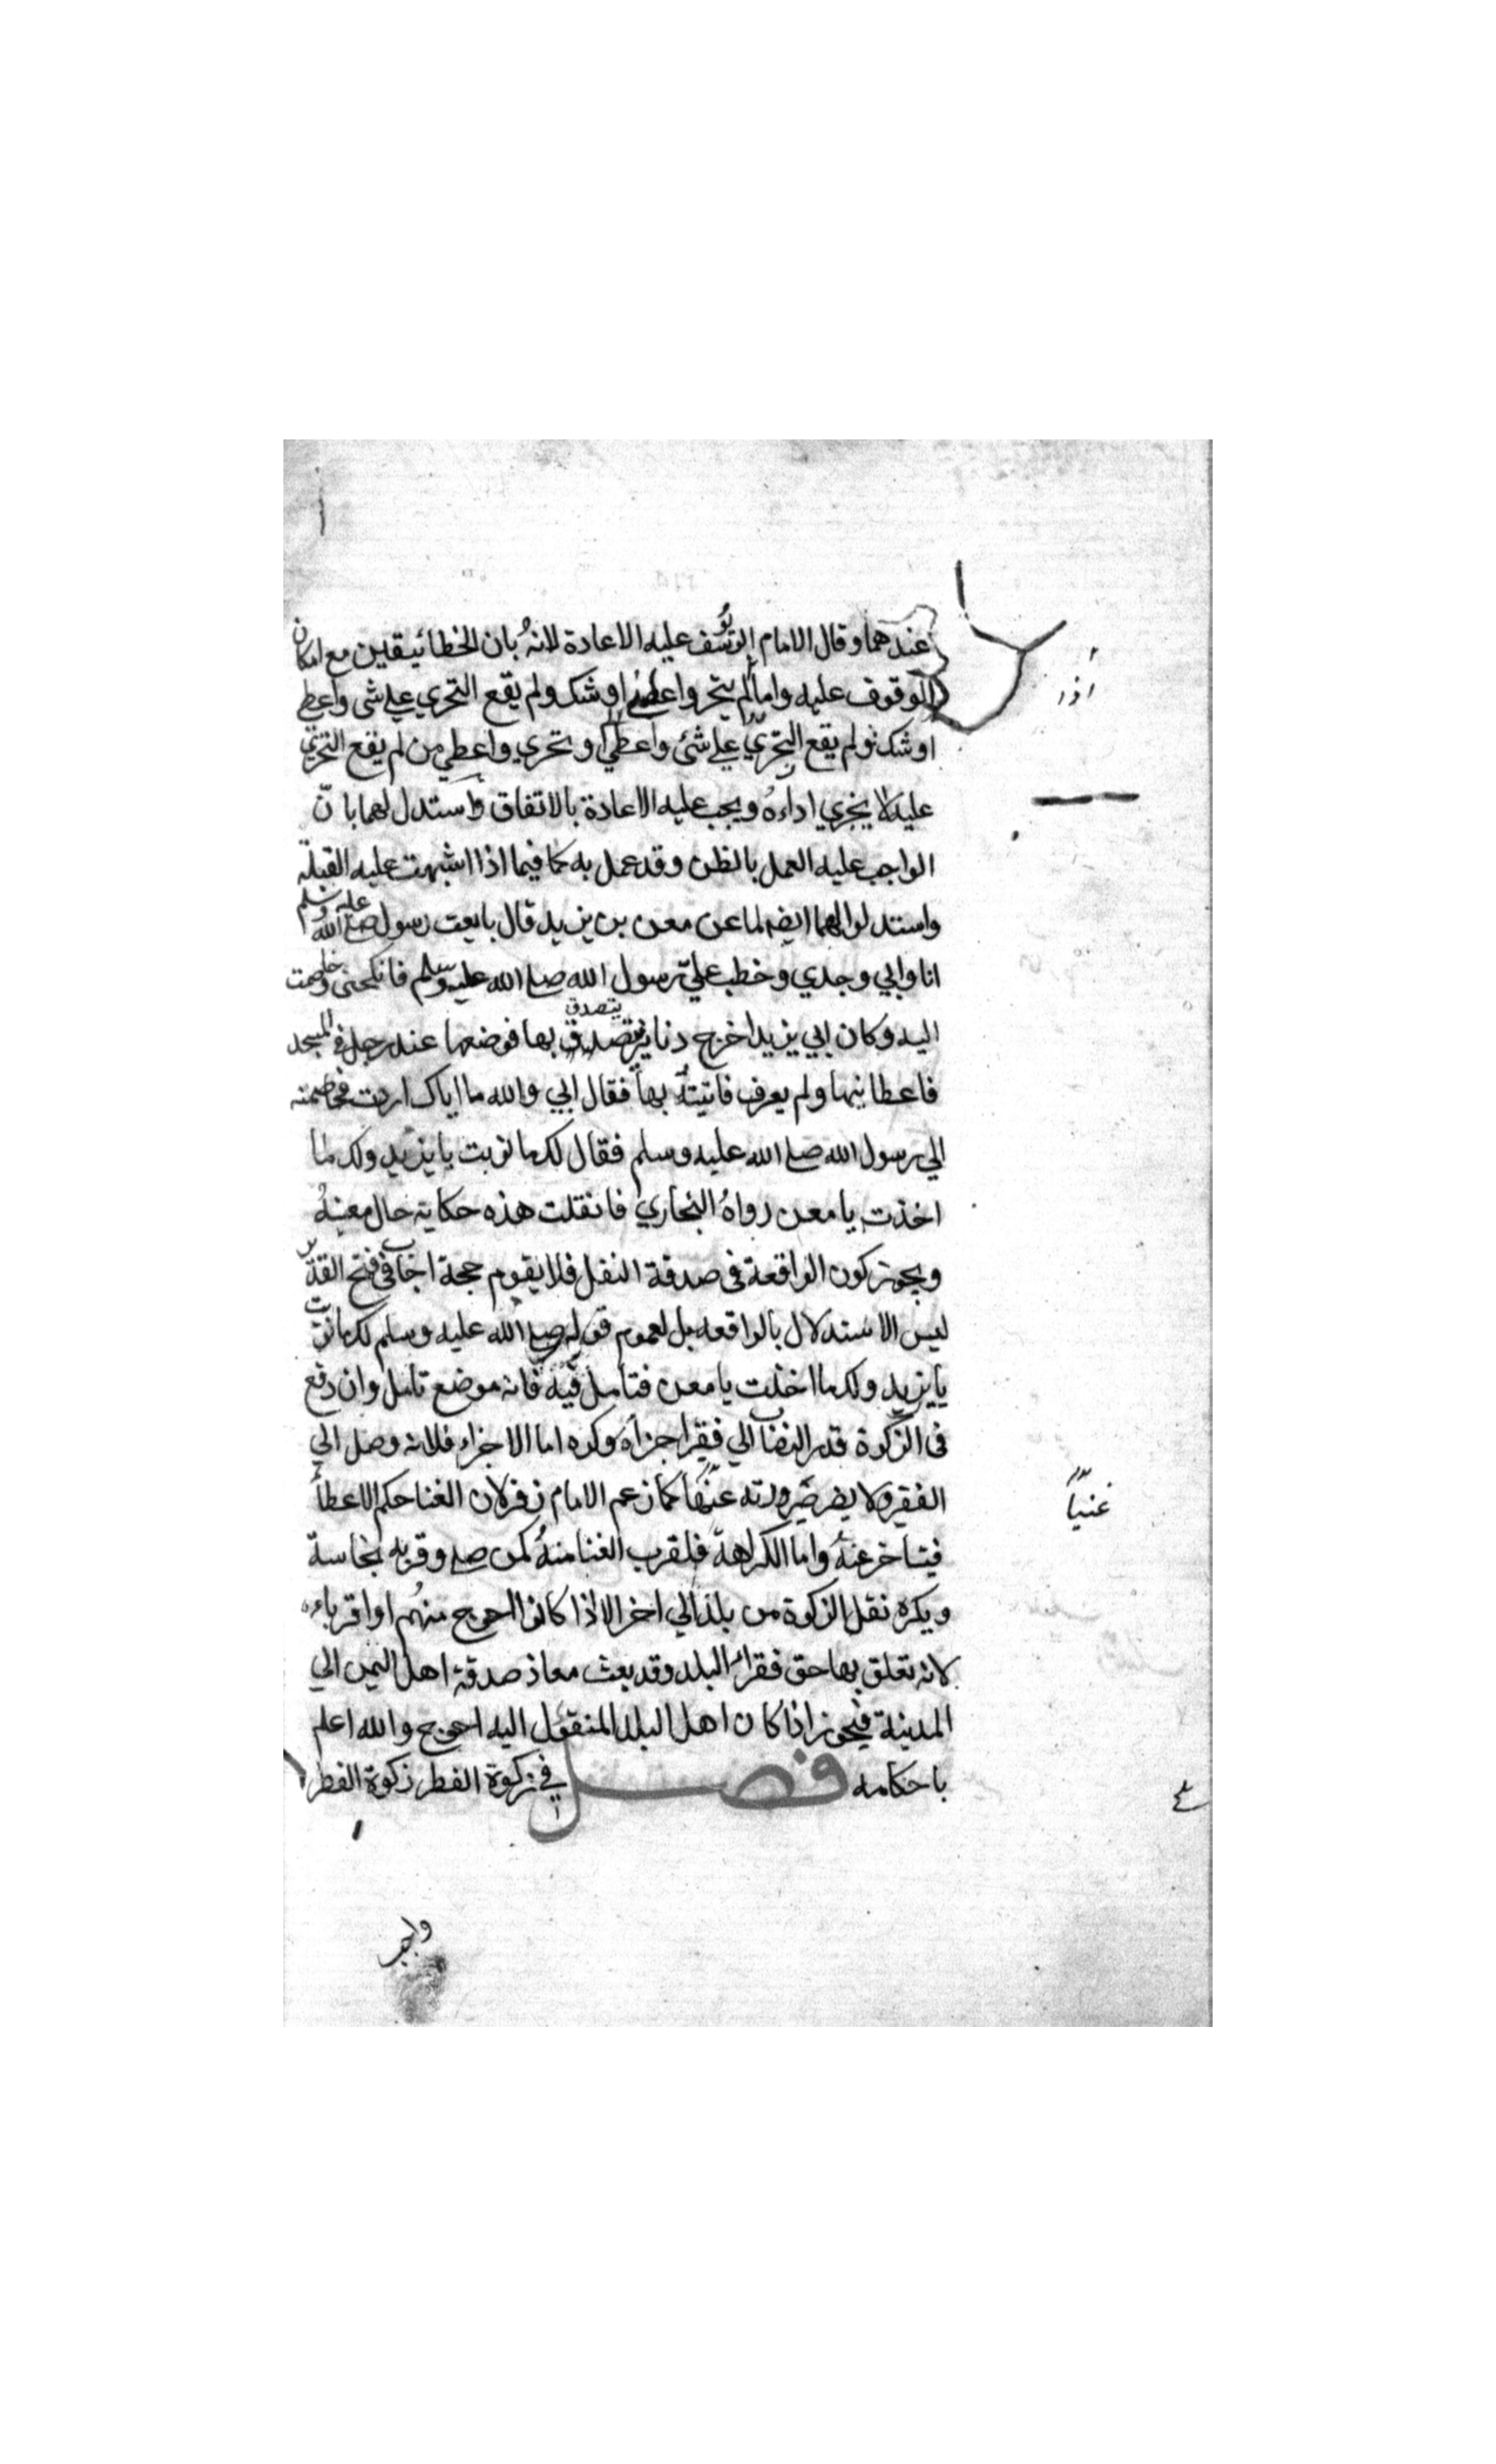 عندهما وقال الامام ابو يوسف عليه الاعادة لانهُ بان الخطا بيقين مع امكان
الوقوف عليه واما لم يتحر واعطي او شك ولم يقع التحري علي شى واعطي
او شك ولم يقع التحريّ علي شئ واعطي او تحري واعطي من لم يقع التحري
عليه لا يجزي اداءهُ ويجب عليه الاعادة بالاتفاق واستدل لهما بانّ
الواجب عليه العمل بالظن وقد عمل به كما فيما اذا اشبهت عليه القبلة
واستدلوا لهما ايضا لما عن معن بن يزيد قال بايعت رسول الله صلي الله عليه وسلم
انا وابي وجدي وخطب عليّ رسول الله صلي الله عليه وسلم فانكحنى وخاصمت
اليه وكان ابي يزيد اخرج دنانير يتصدق بها فوضعها عند رجل في المسجد
فاعطانيها ولم يعرف فاتيتهُ بها فقال ابي والله ما اياك اردت فخاصمته
الي رسول الله صلي الله عليه وسلم فقال لك ما نويت يا يزيد ولك ما
اخذت يا معن رواهُ البخاري فان قلت هذه حكاية حال معينهُ
ويجوز كون الواقعة فى صدقة النفل فلا يقوم حجة اجاب في فتح القدير
ليس الاستدلال بالواقعه بل لعموم قوله صلي الله عليه وسلم لك ما نويت
يا يزيد ولك ما اخذت يا معن فتامل فيه فانه موضع تامل وان دفع
فى الزكوة قدر النصاب الي فقير اجزاه وكره اما الاجزاء فلانه وصل الي
الفقير ولا يضر صيرورته عنها كما زعم الامام زفر لان الغنا حكم الاعطأ
فيتأخر عنهُ واما الكراهة فلقرب الغنا منهُ كمن صلي وقربه نجاسة
ويكره نقل الزكوة من بلد الي اخر الا اذا كانوا احوج منهم او اقرباءه
لانه تعلق بها حق فقراء البلد وقد بعث معاذ صدقة اهل اليمن الي
المدينة فيجوز اذا كان اهل البلد المنقول اليه احوج والله اعلم
باحكامه فصل في زكوة الفطر زكوة الفطر
غنياً